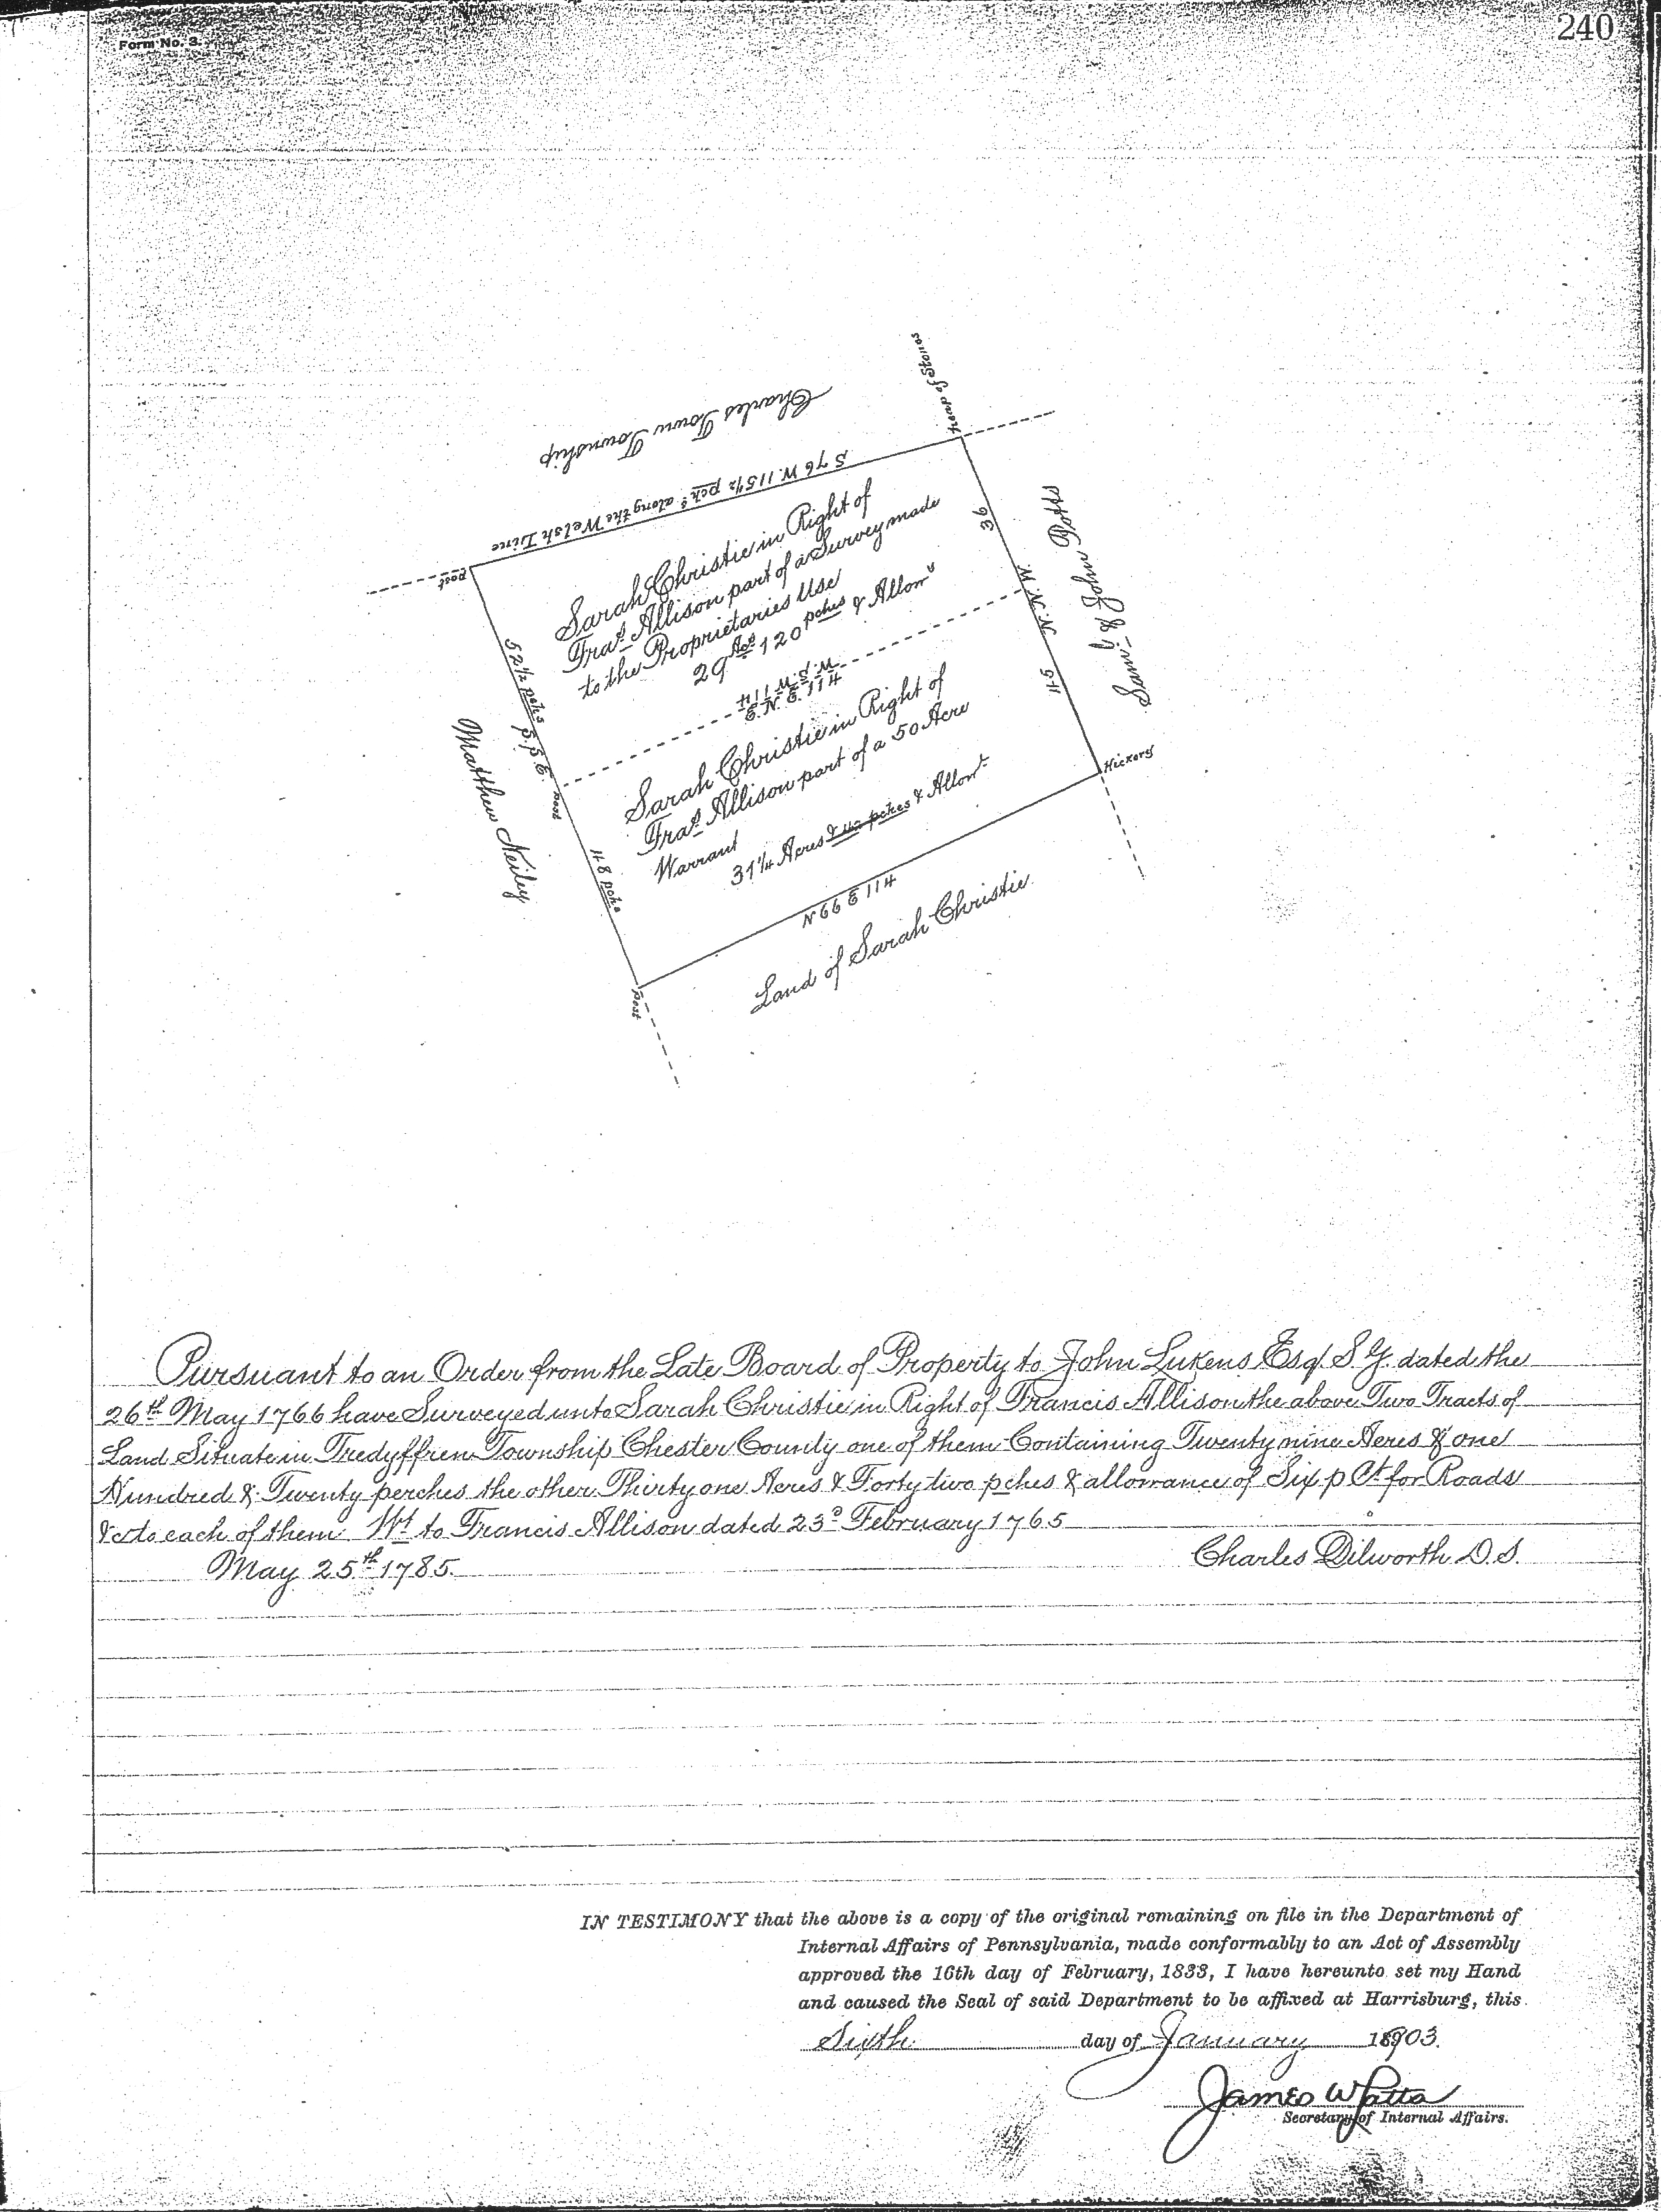 240
Form No. 3.
Heap of Stones
Charles Town Township
S 76 W. 115½ pchs along the Welsh Line
post
Sarah Christie in Right of
Fras Allison part of a Survey made
to the Proprietaries Use
29 Acs 120 pches & Allowe
36
N. N. W.
45
Saml & John Potts
52½ pches S. S. E.
W. S. W 114
E. N. E. 114
Matthew Neiley
post
48 pchs
Sarah Christie in Right of
Fras Allison part of a 50 Acre
Warrant
31¼ Acres & 42 pches & Allowe
Hickory
N 66 E 114
Land of Sarah Christie
post
Pursuant to an Order from the Late Board of Property to John Lukens Esqr S. G. dated the
26th May 1766 have Surveyed unto Sarah Christie in Right of Francis Allison the above Two Tracts of
Land Situate in Tredyffren Township Chester County one of them Containing Twenty nine Acres & one
Hundred & Twenty perches the other Thirty one Acres & Forty two pches & allowance of Six p Ct for Roads
&c to each of them. Wt to Francis Allison dated 23d February 1765
May 25th 1785. Charles Dilworth D. S.
IN TESTIMONY that the above is a copy of the original remaining on file in the Department of
Internal Affairs of Pennsylvania, made conformably to an Act of Assembly
approved the 16th day of February, 1833, I have hereunto set my Hand
and caused the Seal of said Department to be affixed at Harrisburg, this
Sixth day of January 1903.
James W Latta
Secretary of Internal Affairs.